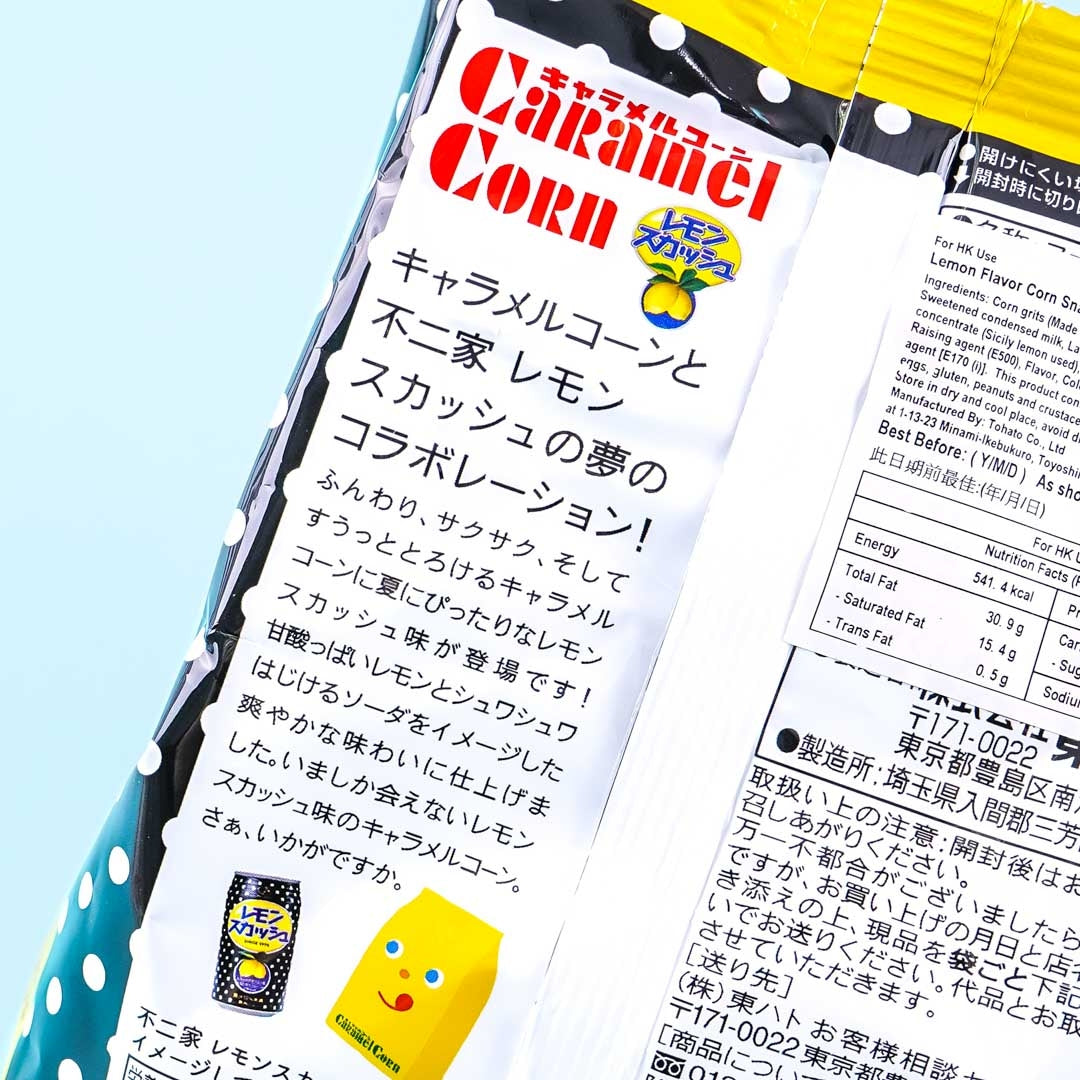 キャラメルコーン
Caramel
Corn
レモン
スカッシュ
キャラメルコーンと
不二家 レモン
スカッシュの夢の
コラボレーション!
ふんわり、サクサク、そして
すうっととろけるキャラメル
コーンに夏にぴったりなレモン
スカッシュ味が登場です!
甘酸っぱいレモンとシュワシュワ
はじけるソーダをイメージした
爽やかな味わいに仕上げま
した。いましか会えないレモン
スカッシュ味のキャラメルコーン。
さぁ、いかがですか。
レモン
スカッシュ
SINCE 1975
Caramel Corn
不二家 レモンスカ
イメージして
開けにくい
開封時に切り
For HK Use
Lemon Flavor Corn Sna
Ingredients: Corn grits (Made
Sweetened condensed milk, La
concentrate (Sicily lemon used),
Raising agent (E500), Flavor, Col
agent [E170 (i)]. This product con
eggs, gluten, peanuts and crustace
Store in dry and cool place, avoid di
Manufactured By: Tohato Co., Ltd
at 1-13-23 Minami-Ikebukuro, Toyoshi
Best Before: ( Y/M/D ) As sho
此日期前最佳:(年/月/日)
For HK U
Nutrition Facts (
Energy 541.4 kcal
Total Fat 30.9 g
- Saturated Fat 15.4 g
- Trans Fat 0.5 g
Pr
Car
- Sug
Sodiu
株式会社
〒171-0022
東京都豊島区南
●製造所:埼玉県入間郡三芳
取扱い上の注意:開封後はお
召しあがりください。
万一不都合がございましたら
ですが、お買い上げの月日と店
き添えの上、現品を袋ごと下記
いでお送りください。代品とお取
させていただきます。
[送り先]
(株)東ハト お客様相談
〒171-0022 東京都豊
[商品につい